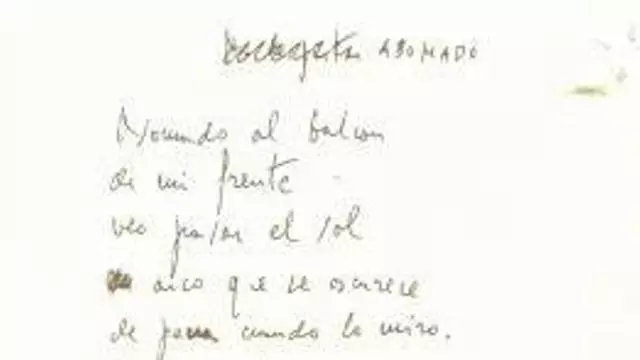 ASOMADO
Asomado al balcon
de mi frente
veo pasar el sol
arco que se oscurece
de pena cuando lo miro.